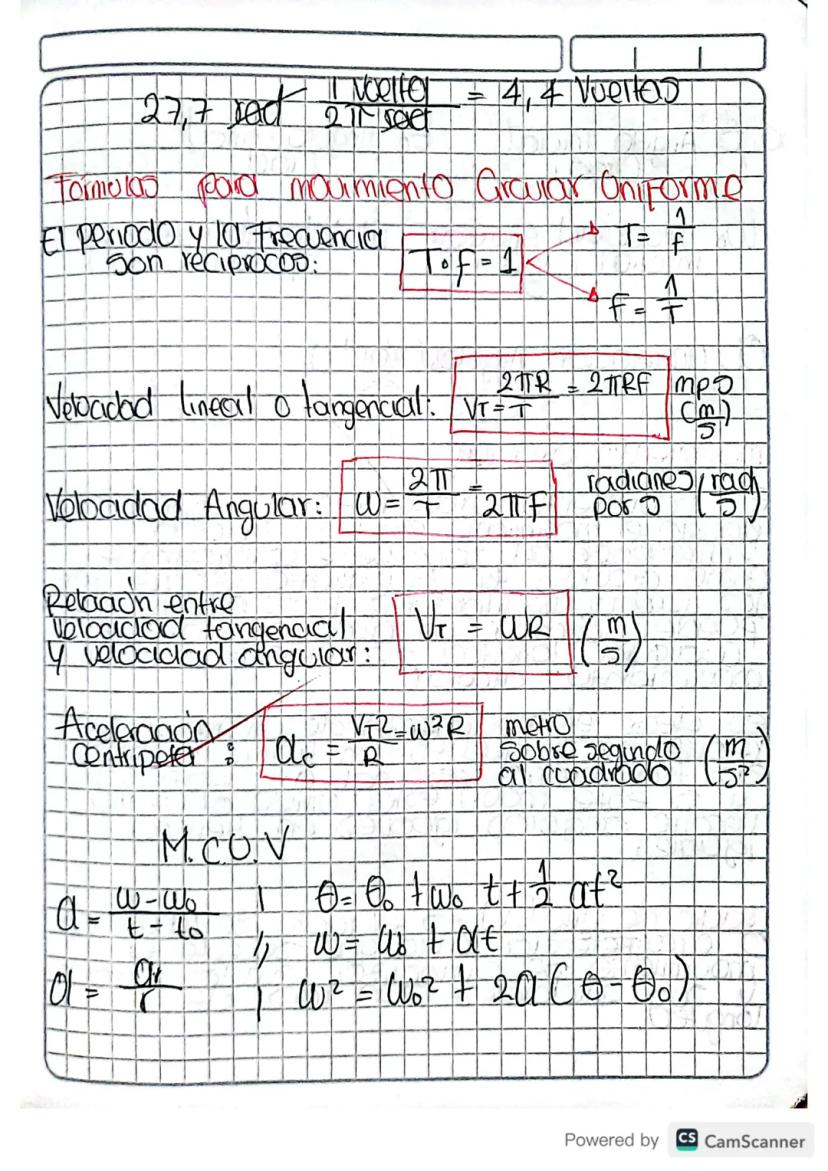 27,7 rad 1 Vuelta / 2π rad = 4,4 Vueltas
Fórmulas para movimiento Circular Uniforme
El periodo y la frecuencia
son recíprocos: T • f = 1
T = 1/f
f = 1/T
Velocidad lineal o tangencial: VT = 2πR/T = 2πRF mps (m/s)
Velocidad Angular: ω = 2π/T = 2πF radianes por s (rad/s)
Relación entre
velocidad tangencial
y velocidad angular: VT = ωR (m/s)
Aceleración
Centripeta : ac = VT²/R = ω²R metro
sobre segundo
al cuadrado (m/s²)
M.C.U.V
α = ω - ω₀ / t - t₀ | θ = θ₀ + ω₀ t + 1/2 αt²
ω = ω₀ + αt
α = aT/r | ω² = ω₀² + 2α(θ - θ₀)
Powered by CS CamScanner